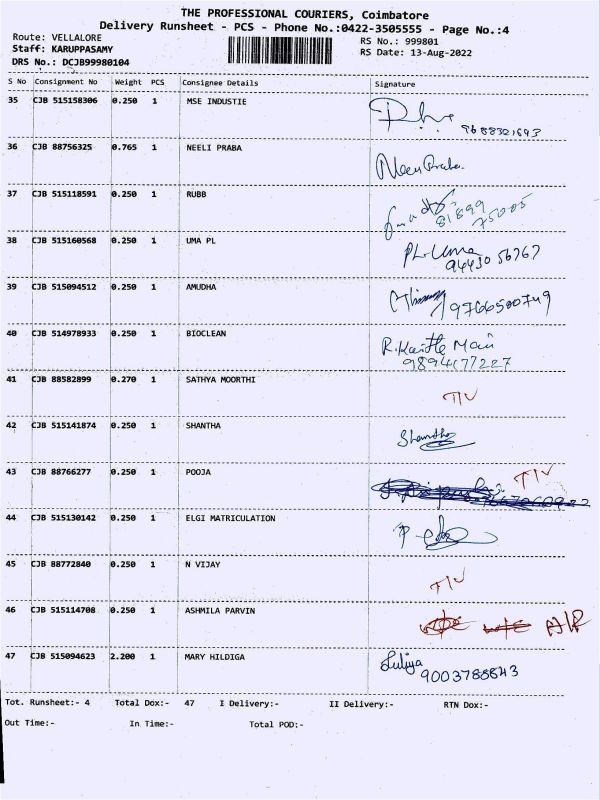 THE PROFESSIONAL COURIERS, Coimbatore
Delivery Runsheet - PCS - Phone No.:0422-3505555 - Page No.:4
Route: VELLALORE
RS No.: 999801
Staff: KARUPPASAMY
RS Date: 13-Aug-2022
DRS No.: DCJB99980104
S No Consignment No Weight PCS Consignee Details Signature
35 CJB 515158306 0.250 1 MSE INDUSTIE
36 CJB 88756325 0.765 1 NEELI PRABA
37 CJB 515118591 0.250 1 RUBB
81899
75005
38 CJB 515160568 0.250 1 UMA PL PL. Uma
94430 56767
39 CJB 515094512 0.250 1 AMUDHA
9766500749
40 CJB 514978933 0.250 1 BIOCLEAN
9894177227
41 CJB 88582899 0.270 1 SATHYA MOORTHI
42 CJB 515141874 0.250 1 SHANTHA Shantha
43 CJB 88766277 0.250 1 POOJA
44 CJB 515130142 0.250 1 ELGI MATRICULATION
45 CJB 88772840 0.250 1 N VIJAY
46 CJB 515114708 0.250 1 ASHMILA PARVIN
47 CJB 515094623 2.200 1 MARY HILDIGA
9003788843
Tot. Runsheet:- 4 Total Dox:- 47 I Delivery:- II Delivery:- RTN Dox:-
Out Time:- In Time:- Total POD:-